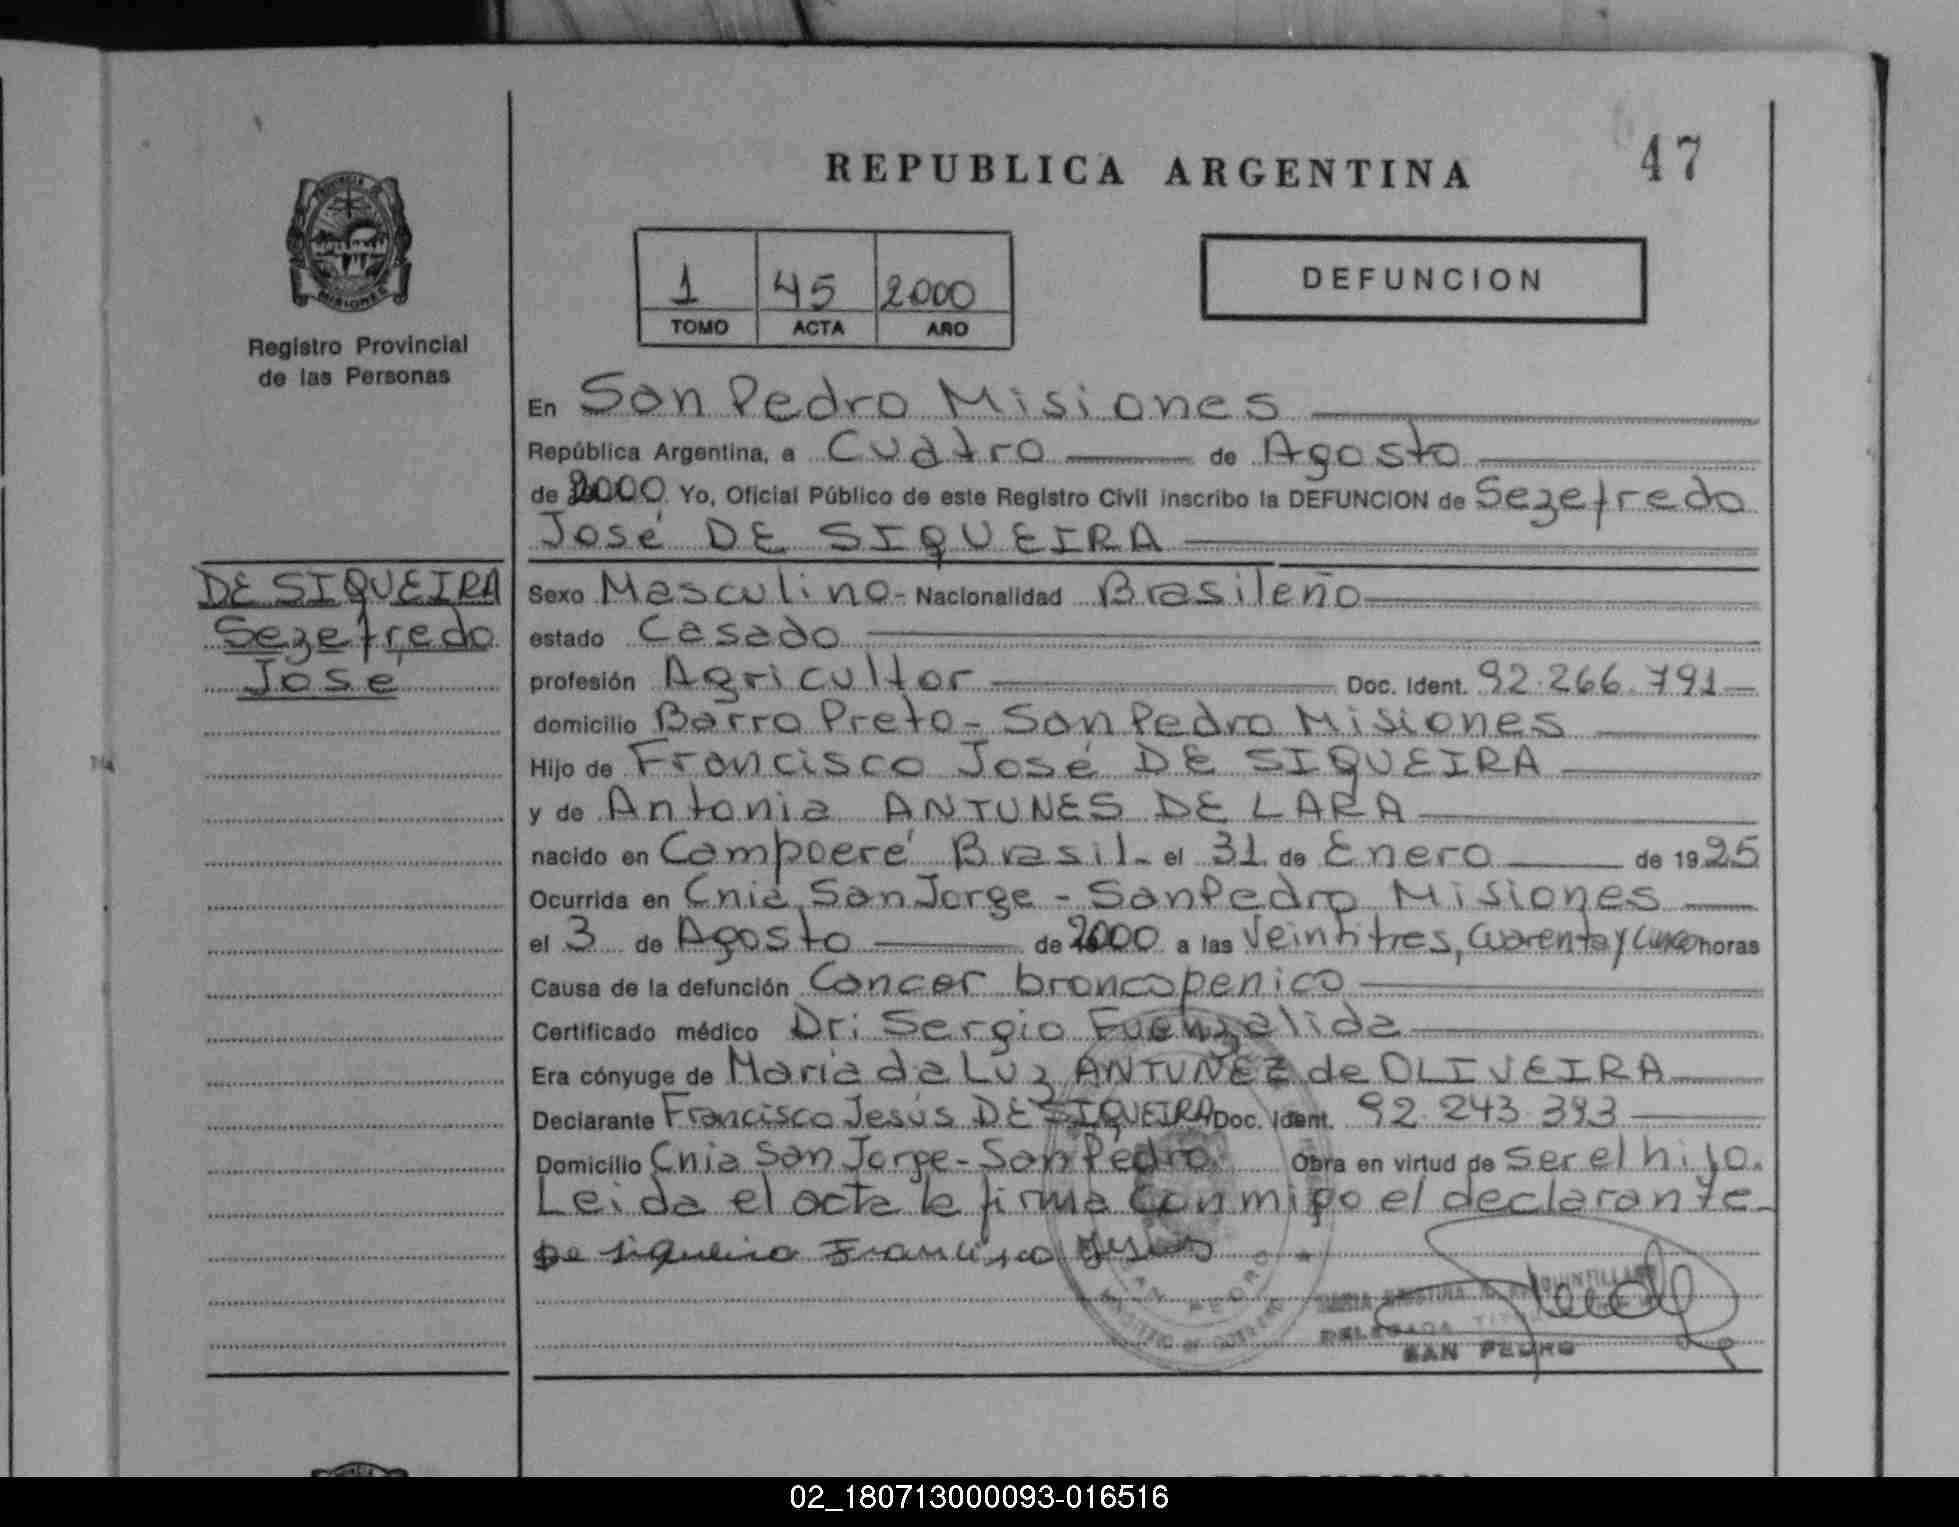 47
REPUBLICA ARGENTINA
PROVINCIA DE
MISIONES
Registro Provincial
de las Personas
1 45 2000
TOMO ACTA AÑO
DEFUNCION
En San Pedro Misiones
República Argentina, a Cuatro de Agosto
de 2000 Yo, Oficial Público de este Registro Civil inscribo la DEFUNCION de Sezefredo
José DE SIQUEIRA
DE SIQUEIRA
Sezefredo
José
Sexo Masculino - Nacionalidad Brasileño
estado Casado
profesión Agricultor Doc. Ident. 92.266.791
domicilio Barro Preto - San Pedro Misiones
Hijo de Francisco José DE SIQUEIRA
y de Antonia ANTUNES DE LARA
nacido en Campoeré Brasil - el 31 de Enero de 1925
Ocurrida en Cnia San Jorge - San Pedro Misiones
el 3 de Agosto de 2000 a las Veintitres, Cuarenta y Cinco horas
Causa de la defunción Cancer broncopenico
Certificado médico Dr: Sergio Fuenzalida
Era cónyuge de María da Luz ANTUNEZ de OLIVEIRA
Declarante Francisco Jesús DE SIQUEIRA Doc. Ident. 92.243.393
Domicilio Cnia San Jorge - San Pedro Obra en virtud de ser el hijo.
Leida el acta la firma conmigo el declarante -
De Siqueira Francisco Jesus
SAN PEDRO
MINISTERIO DE GOBIERNO
MARIA CRISTINA QUINTILLAN
DELEGADA TITULAR
SAN PEDRO
02_180713000093-016516